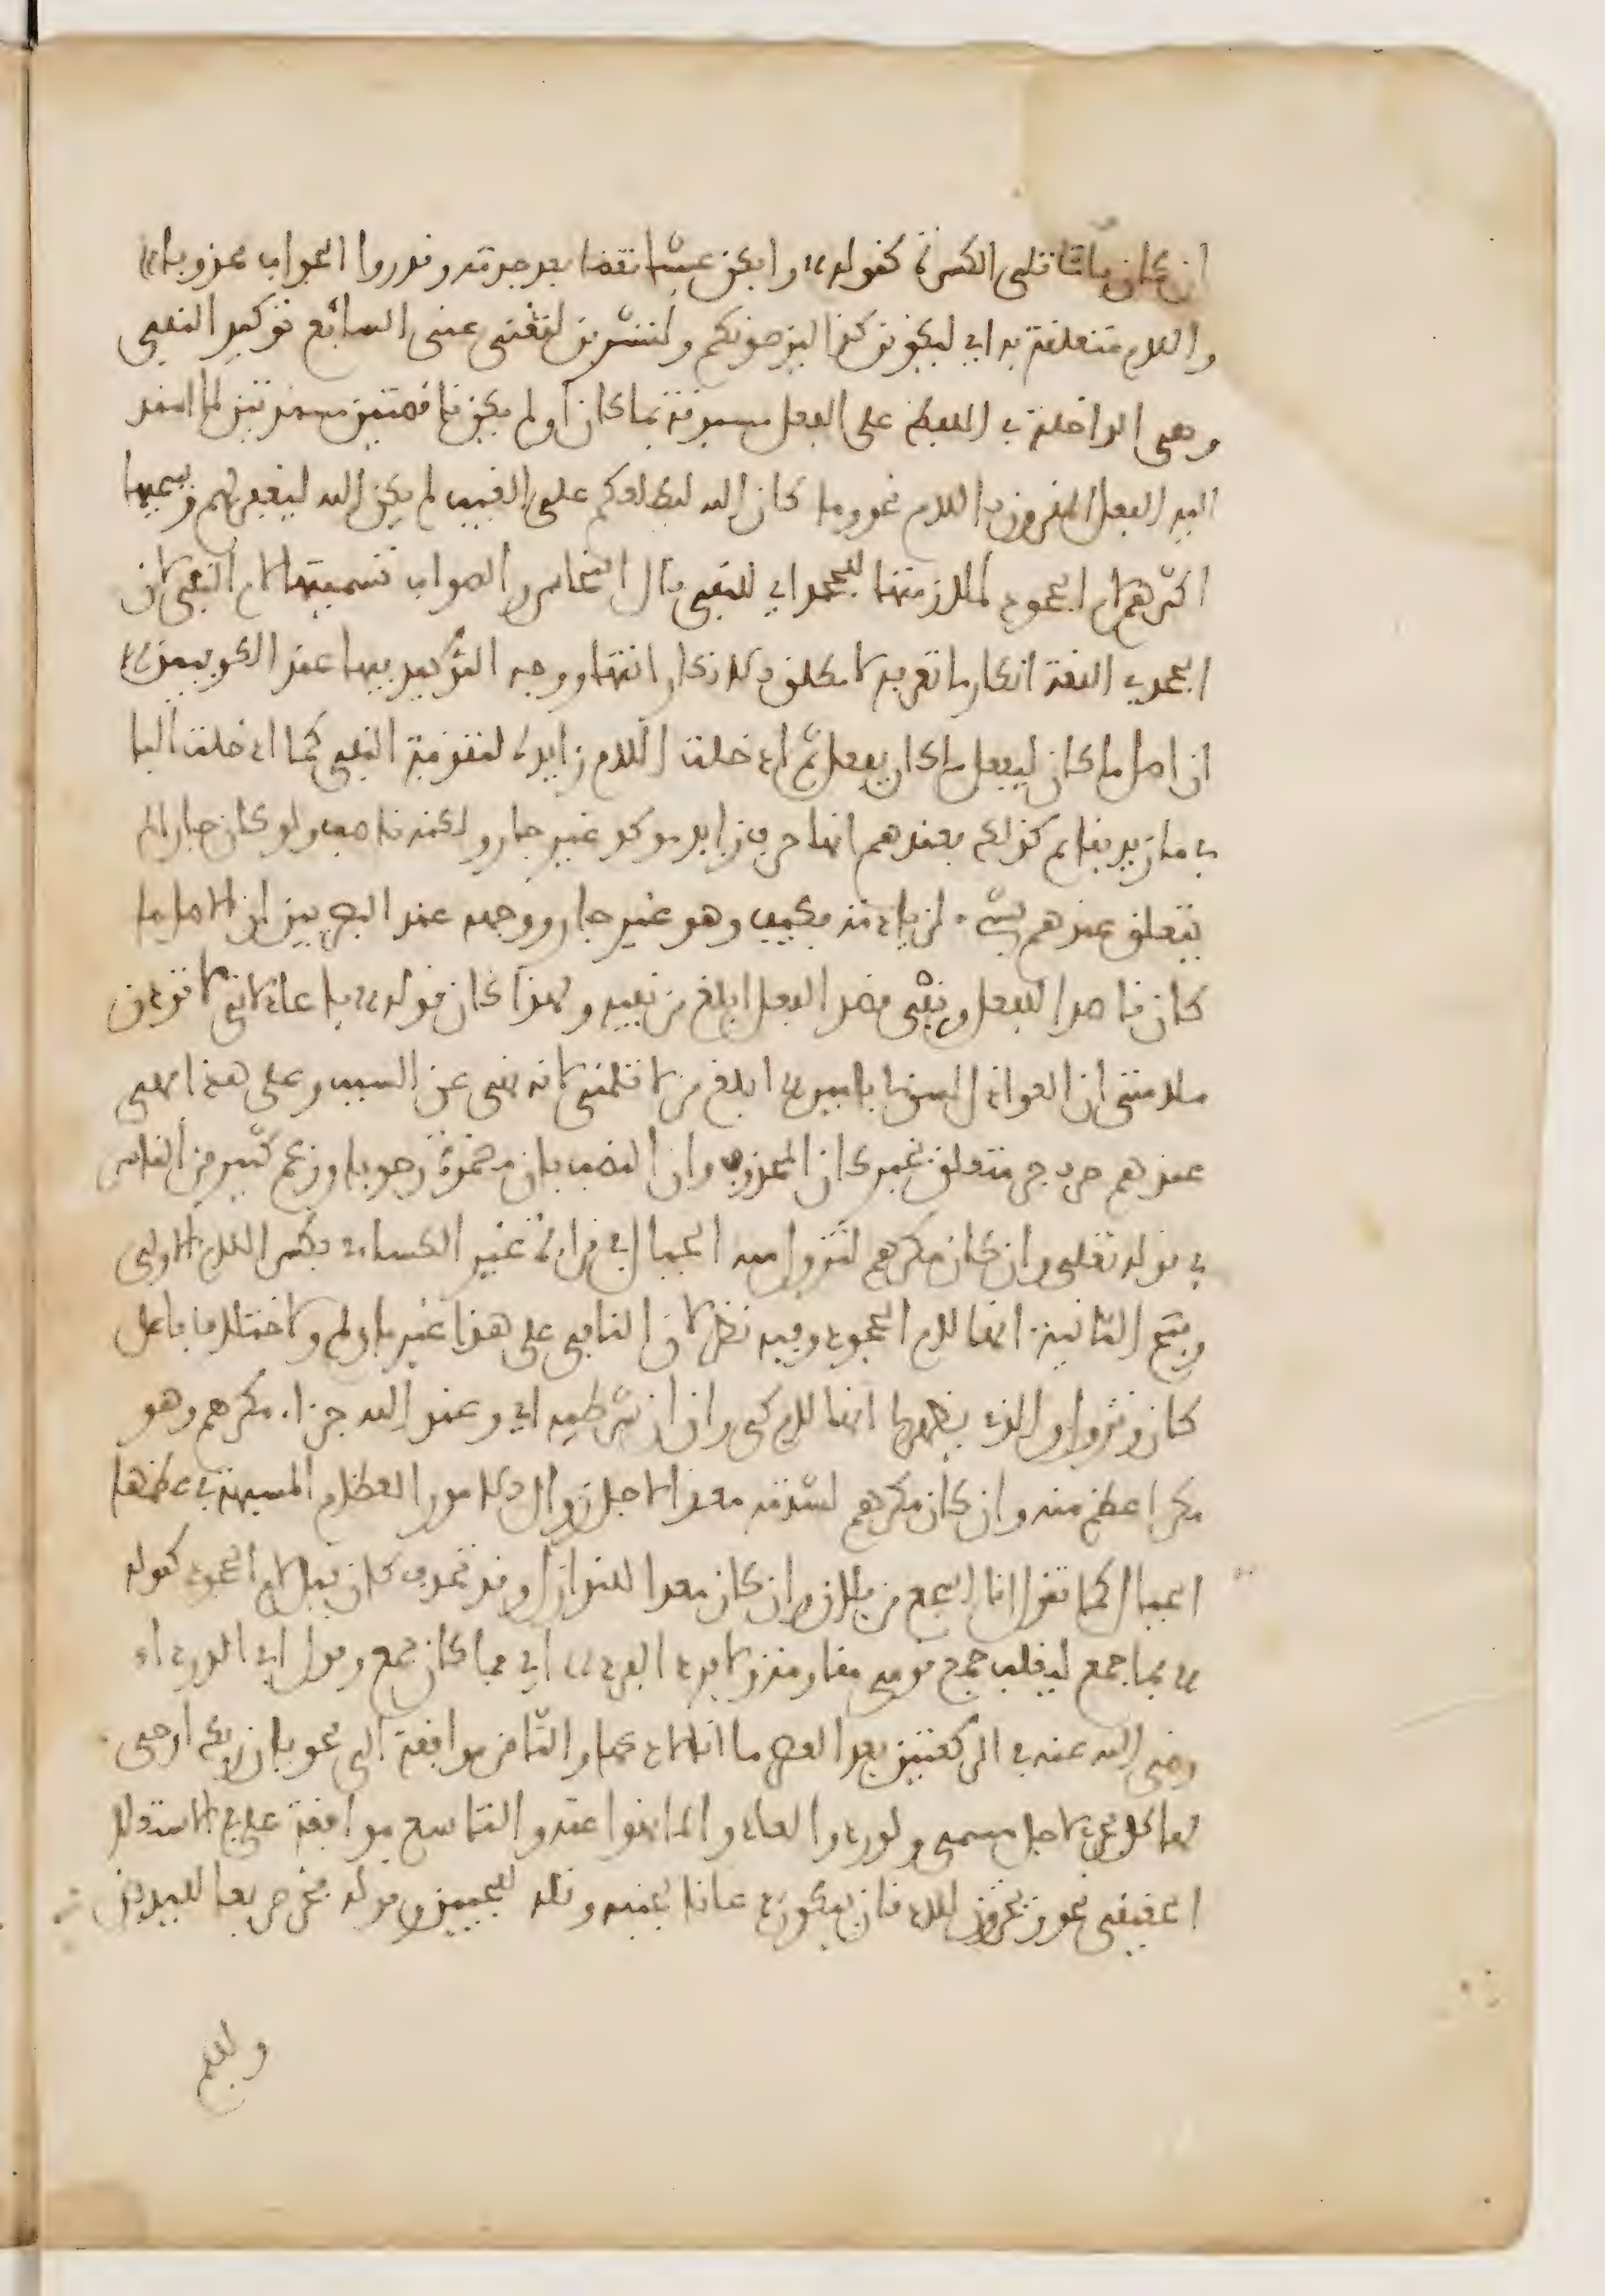 ان كان ياتا تلى الكسرة كقوله وابكن عيشا تقضا بعد جدته وقدروا الجواب محذوبا
واللام متعلقة به اي ليكونن كذا ليرضونكم ولتشربن لتغنى عنى السابع توكيد النفي
وهى الداخلة في اللفظ على الفعل مسبوقة بما كان او لم يكن ناقصتين مسندتين لما اسند
اليه الفعل المقرون باللام نحو وما كان الله ليطلعكم على الغيب لم يكن الله ليغفر لهم ويسميها
اكثرهم لام الجحود لملازمتها للجحد اي للنفي قال النحاس والصواب تسميتها لام النفي لان
الجحد في اللغة انكار ما تعرفه لا مطلق الانكار انتهى ووجه التوكيد فيها عند الكوفيين
ان اصل ما كان ليفعل ما كان يفعل ثم ادخلت اللام زايدة لتقوية النفي كما ادخلت البا
في ما زيد بقايم كذلك فعندهم انها حرف زايد موكد غير جار ولكنه ناصب ولو كان جارا لم
يتعلق عندهم بشيء لزيادته فكيف وهو غير جار ووجهه عند البصريين ان الاصل ما
كان قاصدا للفعل ونفي قصد الفعل ابلغ من نفيه ولهذا كان قوله يا عاذلاتي لا تزدن
ملامتي ان العواذل لسن لي بامير ابلغ من لا تلمنني لانه نهى عن السبب وعلى هذا فهي
عندهم حرف جر متعلق بخبر كان المحذوف وان النصب بان مضمرة وجوبا وزعم كثير من الناس
في قوله تعلى وان كان مكرهم لتزول منه الجبال في قراءة غير الكساءي بكسر اللام الاولى
وفتح الثانية انها لام الجحود وفيه نظر لان النافي على هذا غير ما ولم ولاختلاف فاعلى
كان وتزول والذي يظهر لي انها لام كي وان ان شرطية اي وعند الله جزاء مكرهم وهو
مكر اعظم منه وان كان مكرهم لشدته معدا لاجل زوال الامور العظام المشبهة في عظمها
الجبال كما تقول انا اشجع من فلان وان كان معدا للنوازل وقد تحذف كان قبل لام الجحود كقوله
فما جمع ليغلب جمع قومي مقاومة ولا فرد لفرد اي فما كان جمع وقول ابي الدرداء
رضي الله عنه في الركعتين بعد العصر ما انا لادعهما والثامن موافقة الى نحو بان ربك اوحى
لها كل يجري لاجل مسمى ولو ردوا لعادوا لما نهوا عنه والتاسع موافقة على في الاستعلا
الحقيقي نحو ويخرون للاذقان يبكون دعانا لجنبه وتله للجبين وقوله فخر صريعا لليدين
وللفم